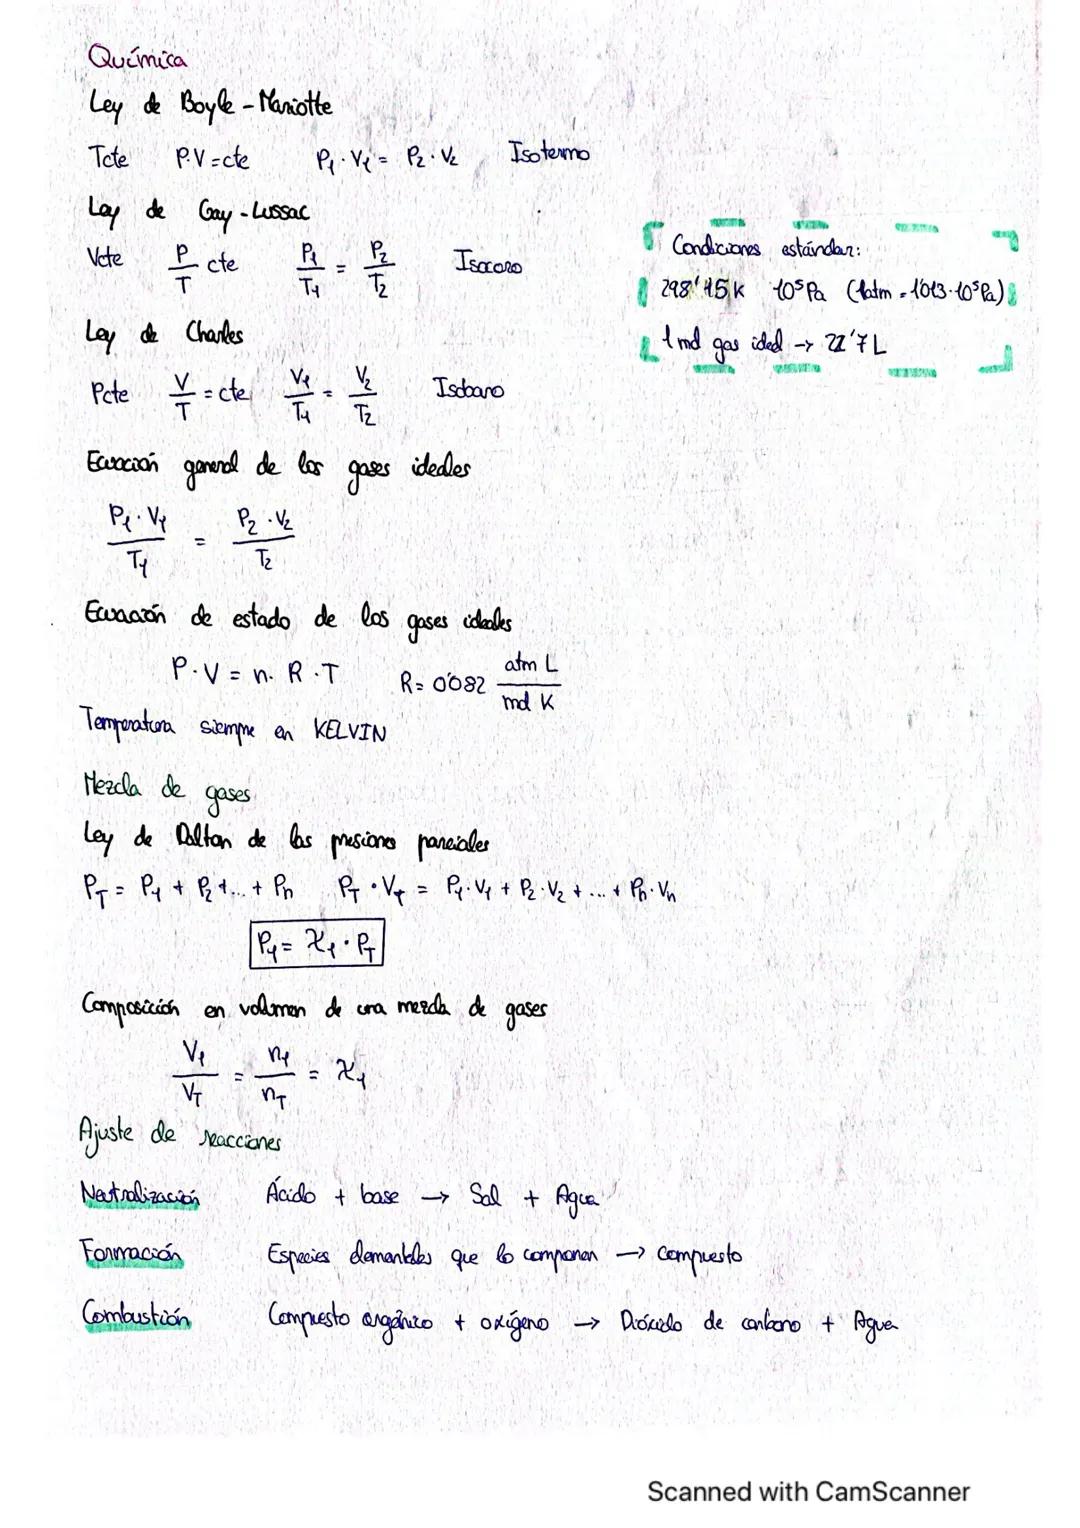 Química
Ley de Boyle-Mariotte
Tcte P.V=cte P₁·V₁ = P₂·V₂ Isotermo
Ley de Gay-Lussac
Vcte P/T cte P₁/T₁ = P₂/T₂ Isocoro
Condiciones estándar:
298'15K 10⁵Pa (1atm = 1'013·10⁵Pa)
1mol gas ideal → 22'7L
Ley de Charles
Pcte V/T = cte V₁/T₁ = V₂/T₂ Isobaro
Ecuación general de los gases ideales
P₁·V₁/T₁ = P₂·V₂/T₂
Ecuación de estado de los gases ideales
P·V = n·R·T R= 0'082 atm L/mol K
Temperatura siempre en KELVIN
Mezcla de gases
Ley de Dalton de las presiones parciales
P_T = P₁ + P₂+...+ Pn P_T·V_T = P₁·V₁ + P₂·V₂ + ... + Pn·Vn
P₁ = χ₁·P_T
Composición en volumen de una mezcla de gases
V₁/V_T = n₁/n_T = χ₁
Ajuste de reacciones
Neutralización Ácido + base → Sal + Agua
Formación Especies elementales que lo componen → compuesto
Combustión Compuesto orgánico + oxígeno → Dióxido de carbono + Agua
Scanned with CamScanner